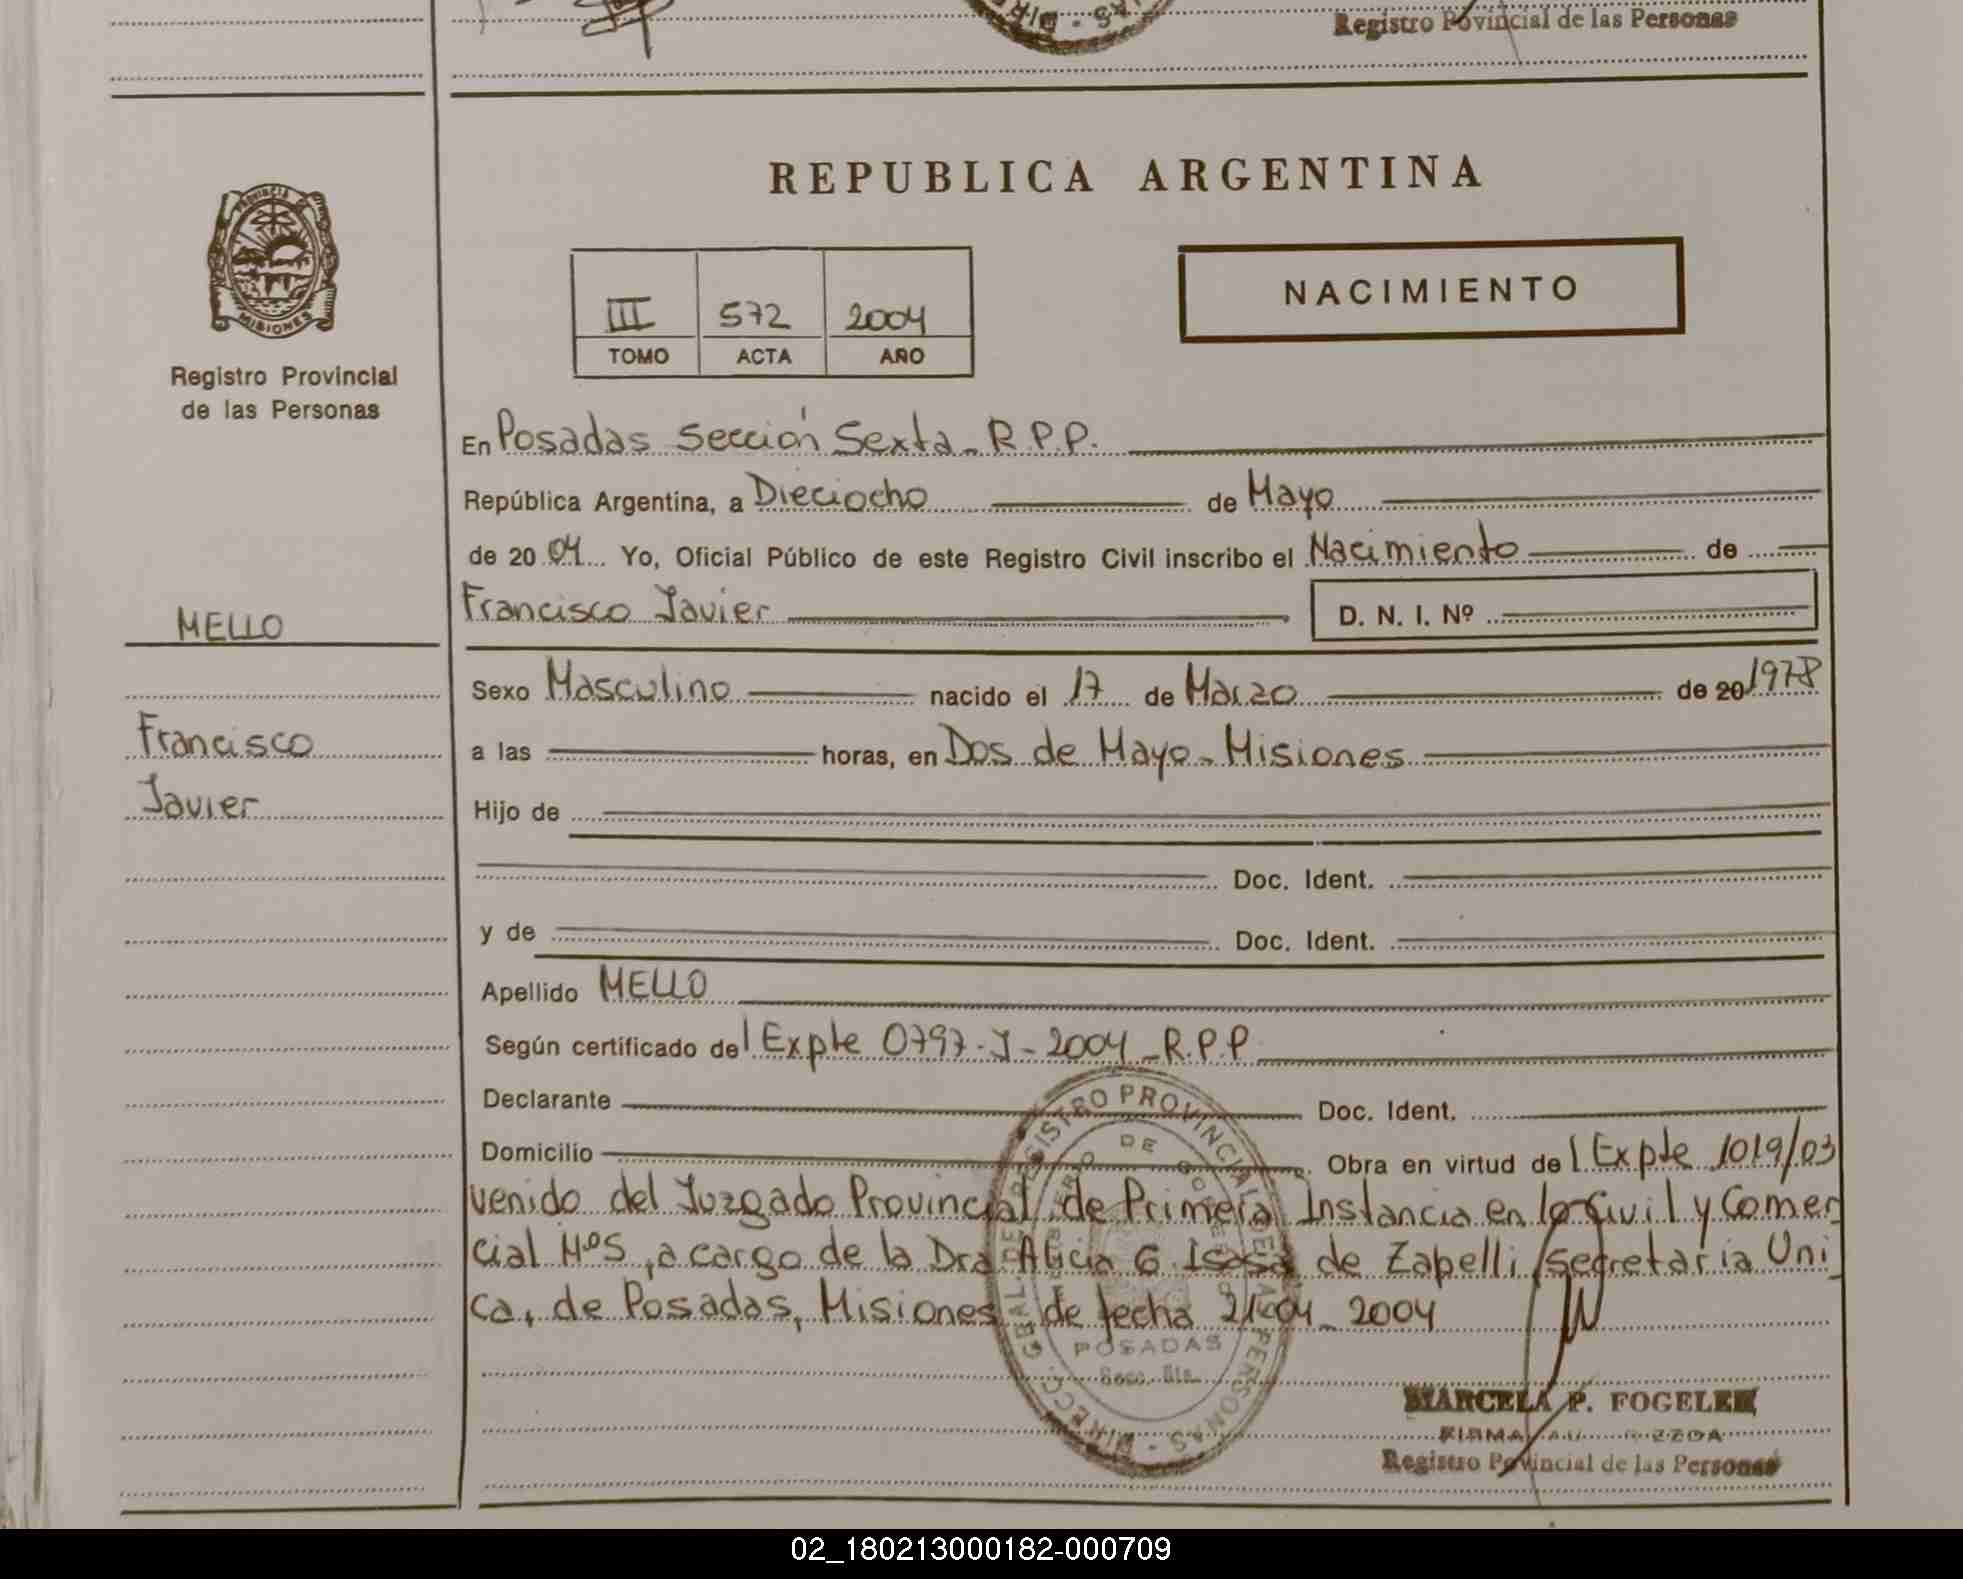 Registro Provincial de las Personas
PROVINCIA DE
MISIONES
Registro Provincial
de las Personas
REPUBLICA ARGENTINA
III 572 2004
TOMO ACTA AÑO
NACIMIENTO
En Posadas Sección Sexta - R.P.P.
República Argentina, a Dieciocho de Mayo
de 20 04 Yo, Oficial Público de este Registro Civil inscribo el Nacimiento de
Francisco Javier D. N. I. Nº
MELLO
Francisco
Javier
Sexo Masculino nacido el 17 de Marzo de 20 1978
a las horas, en Dos de Mayo - Misiones
Hijo de
Doc. Ident.
y de Doc. Ident.
Apellido MELLO
Según certificado del Expte 0797-J-2004 - R.P.P
Declarante Doc. Ident.
Domicilio Obra en virtud del Expte 1019/03
venido del Juzgado Provincial de Primera Instancia en lo Civil y Comer
cial Nº5, a cargo de la Dra Alicia G. Isasa de Zapelli, secretaria Uni
ca, de Posadas, Misiones de fecha 21-04-2004
REGISTRO PROVINCIAL DE LAS PERSONAS
POSADAS
MARCELA P. FOGELER
FIRMA
Registro Provincial de las Personas
02_180213000182-000709